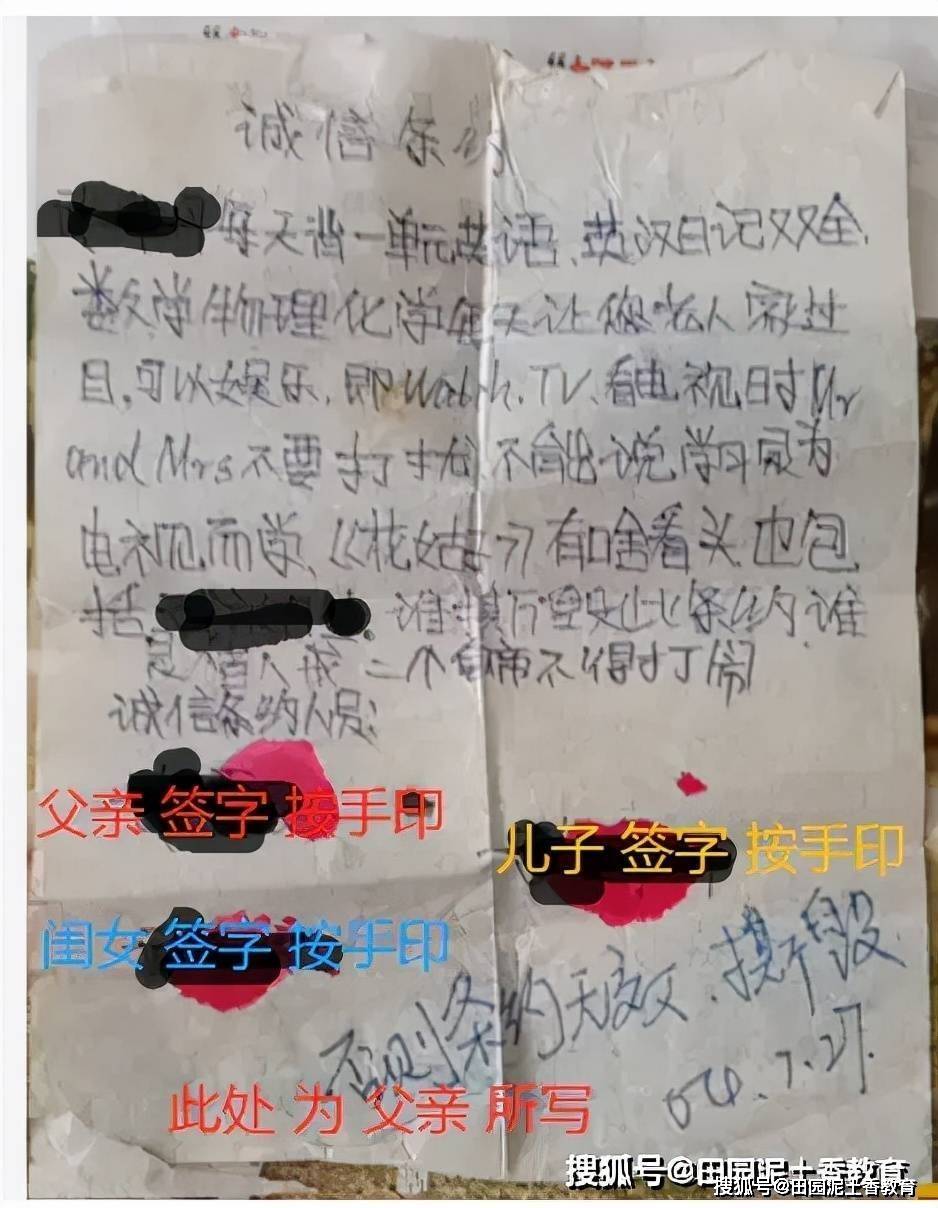 诚信条约
每天背一单元英语、英汉日记双全,
数学物理化学每天让您老人家过
目,可以娱乐,即Watch.TV、看电视时Mr
and Mrs不要打扰不能说学习是为
电视而学,《花姑子》有啥看头也包
括 谁撕毁此条约谁
是 二个 不得打闹
诚信条约人员:
父亲 签字 按手印
儿子 签字 按手印
闺女 签字 按手印
否则条约无效。撕毁
04.7.27.
此处 为 父亲 所写
搜狐号@田园泥土香教育
搜狐号@田园泥土香教育